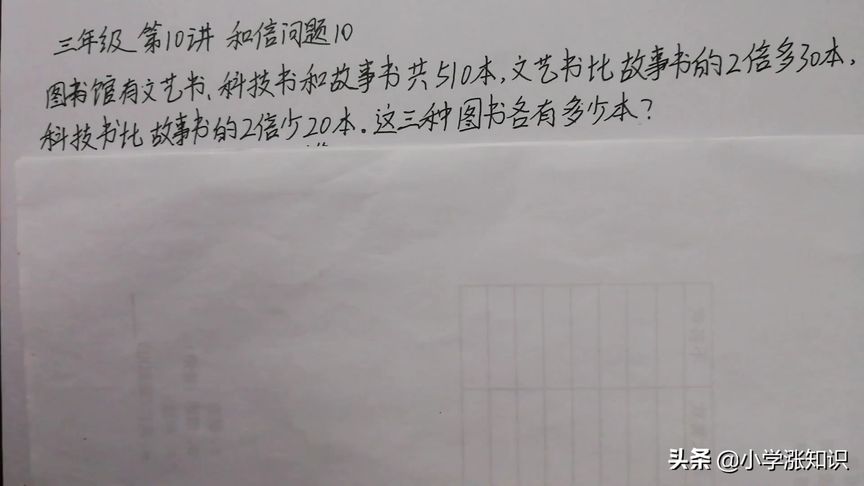 三年级 第10讲 和倍问题10
图书馆有文艺书、科技书和故事书共510本,文艺书比故事书的2倍多30本,
科技书比故事书的2倍少20本.这三种图书各有多少本?
头条 @小学涨知识